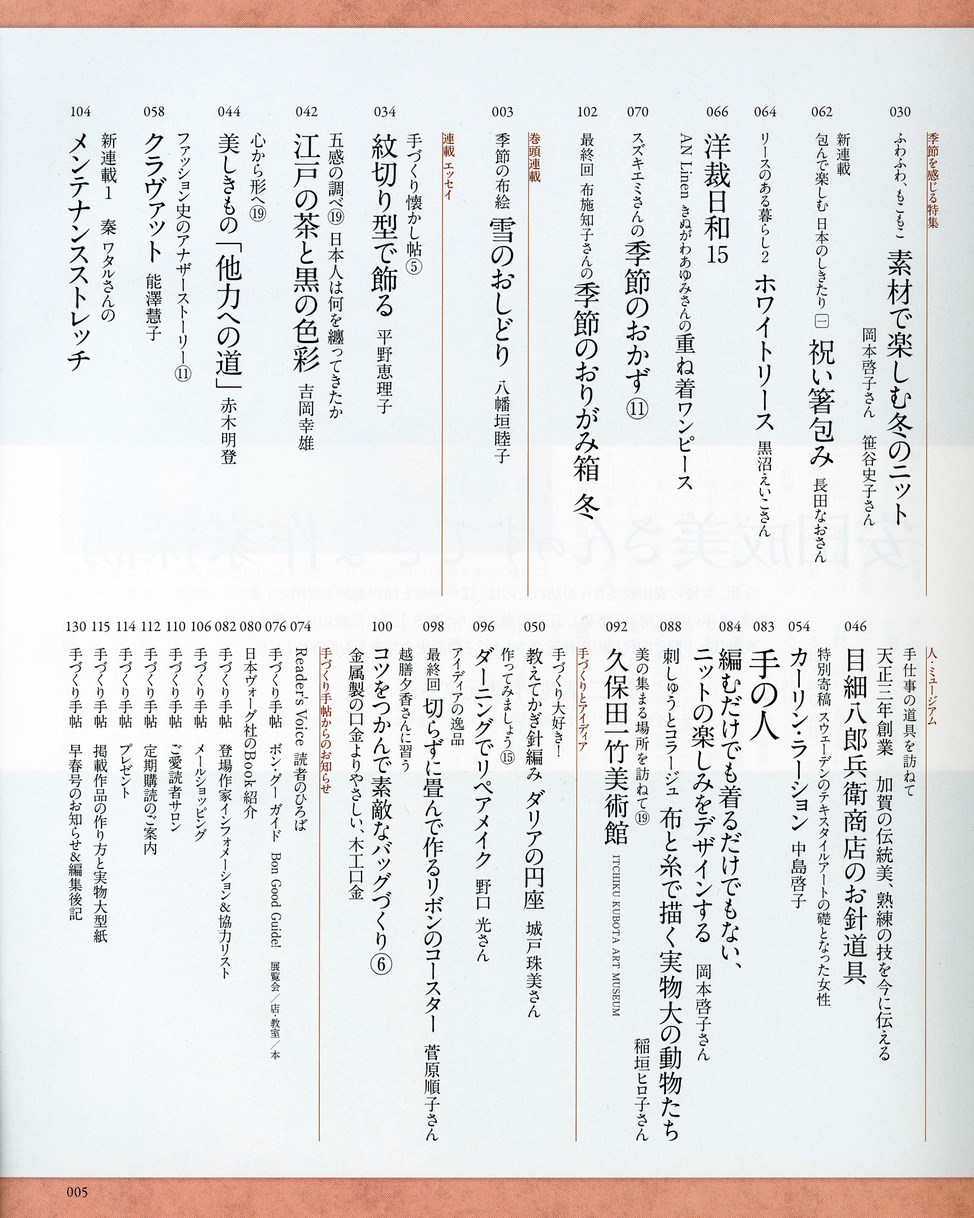 季節を感じる特集
030
ふわふわ、もこもこ 素材で楽しむ冬のニット
岡本啓子さん 笹谷史子さん
新連載
062
包んで楽しむ 日本のしきたり 一 祝い箸包み 長田なおさん
064
リースのある暮らし2 ホワイトリース 黒沼えいこさん
066
洋裁日和15
AN Linen きぬがわあゆみさんの重ね着ワンピース
070
スズキエミさんの季節のおかず⑪
102
最終回 布施知子さんの季節のおりがみ箱 冬
巻頭連載
003
季節の布絵 雪のおしどり 八幡垣睦子
連載 エッセイ
手づくり懐かし帖⑤
034
紋切り型で飾る 平野恵理子
五感の調べ⑲ 日本人は何を纏ってきたか
042
江戸の茶と黒の色彩 吉岡幸雄
心から形へ⑲
044
美しきもの「他力への道」 赤木明登
ファッション史のアナザーストーリー⑪
058
クラヴァット 能澤慧子
新連載1 秦 ワタルさんの
104
メンテナンスストレッチ
人・ミュージアム
手仕事の道具を訪ねて
天正三年創業 加賀の伝統美、熟練の技を今に伝える
046
目細八郎兵衛商店のお針道具
特別寄稿 スウェーデンのテキスタイルアートの礎となった女性
054
カーリン・ラーション 中島啓子
083
手の人
084
編むだけでも着るだけでもない、
ニットの楽しみをデザインする 岡本啓子さん
088
刺しゅうとコラージュ 布と糸で描く実物大の動物たち
稲垣ヒロ子さん
美の集まる場所を訪ねて⑲
092
久保田一竹美術館 ITCHIKU KUBOTA ART MUSEUM
手づくりとアイディア
手づくり大好き!
050
教えてかぎ針編み ダリアの円座 城戸珠美さん
作ってみましょう⑮
096
ダーニングでリペアメイク 野口 光さん
アイディアの逸品
098
最終回 切らずに畳んで作るリボンのコースター 菅原順子さん
越膳夕香さんに習う
100
コツをつかんで素敵なバッグづくり⑥
金属製の口金よりやさしい、木工口金
手づくり手帖からのお知らせ
074
Reader's Voice 読者のひろば
076
手づくり手帖 ボン・グー ガイド Bon Good Guide! 展覧会／店・教室／本
080
日本ヴォーグ社のBook紹介
082
手づくり手帖 登場作家インフォメーション&協力リスト
106
手づくり手帖 メールショッピング
110
手づくり手帖 ご愛読者サロン
112
手づくり手帖 定期購読のご案内
114
手づくり手帖 プレゼント
115
手づくり手帖 掲載作品の作り方と実物大型紙
130
手づくり手帖 早春号のお知らせ&編集後記
005